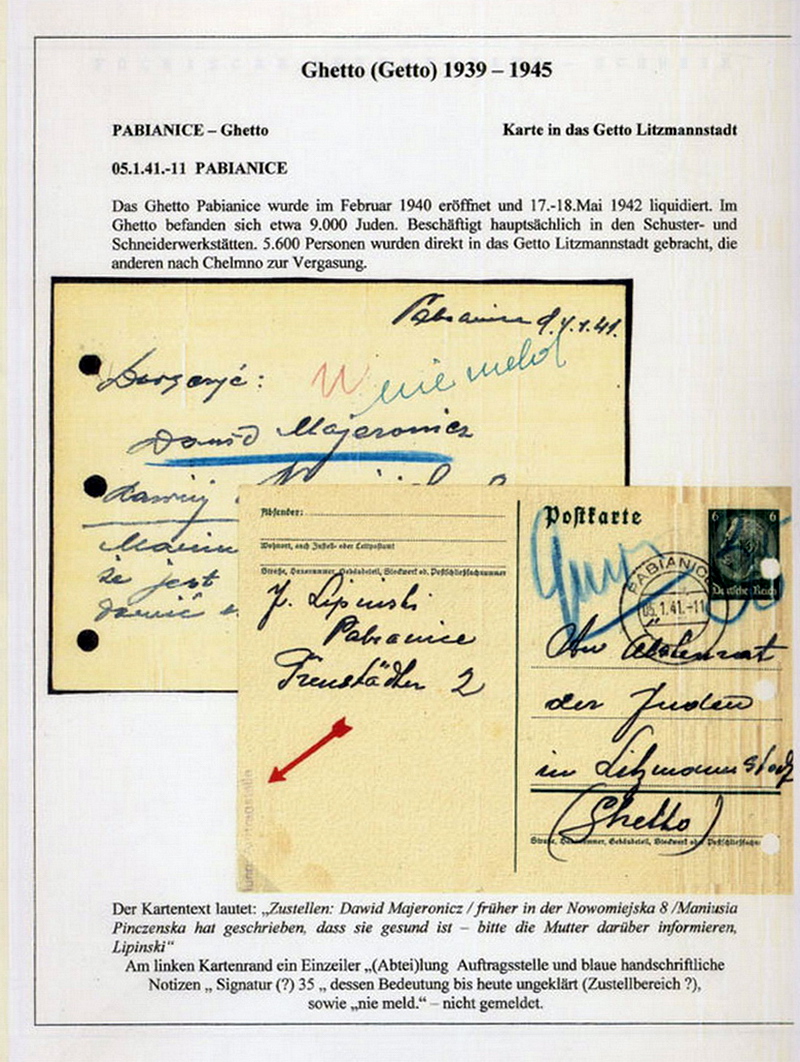 Ghetto (Getto) 1939 – 1945
PABIANICE – Ghetto
Karte in das Getto Litzmannstadt
05.1.41.-11 PABIANICE
Das Ghetto Pabianice wurde im Februar 1940 eröffnet und 17.-18.Mai 1942 liquidiert. Im
Ghetto befanden sich etwa 9.000 Juden. Beschäftigt hauptsächlich in den Schuster- und
Schneiderwerkstätten. 5.600 Personen wurden direkt in das Getto Litzmannstadt gebracht, die
anderen nach Chelmno zur Vergasung.
Pabianice d. 4.1.41.
Doręczyć:
nie meld
Dawid Majerowicz
dawniej
że jest
donieść
Absender:
Wohnort, auch Zustell- oder Leitpostamt
Straße, Hausnummer, Gebäudeteil, Stockwerk od. Postschließfachnummer
J. Lipinski
Pabianice
2
Postkarte
6 6
Deutsches Reich
PABIANICE
05.1.41.-11
An Ältestenrat
der Juden
in Litzmannstadt
(Ghetto)
Straße, Hausnummer, Gebäudeteil, Stockwerk oder Postschließfachnu
Der Kartentext lautet: „Zustellen: Dawid Majeronicz / früher in der Nowomiejska 8 /Maniusia
Pinczenska hat geschrieben, dass sie gesund ist – bitte die Mutter darüber informieren,
Lipinski“
Am linken Kartenrand ein Einzeiler „(Abtei)lung Auftragsstelle und blaue handschriftliche
Notizen „ Signatur (?) 35 „ dessen Bedeutung bis heute ungeklärt (Zustellbereich ?),
sowie „nie meld.“ – nicht gemeldet.